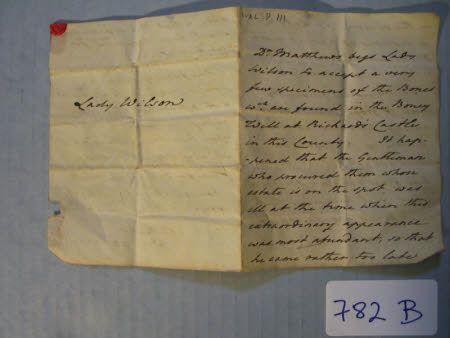 WAL.P.111
Lady Wilson
Dr. Matthews begs Lady
Wilson to accept a very
few specimens of the Bones
wch. are found in the Boney
Well at Richard's Castle
in this County It hap-
-pened that the Gentleman
who procured them whose
estate is on the spot was
ill at the time when this
extraordinary appearance
was most abundant, so that
he came rather too late
782 B